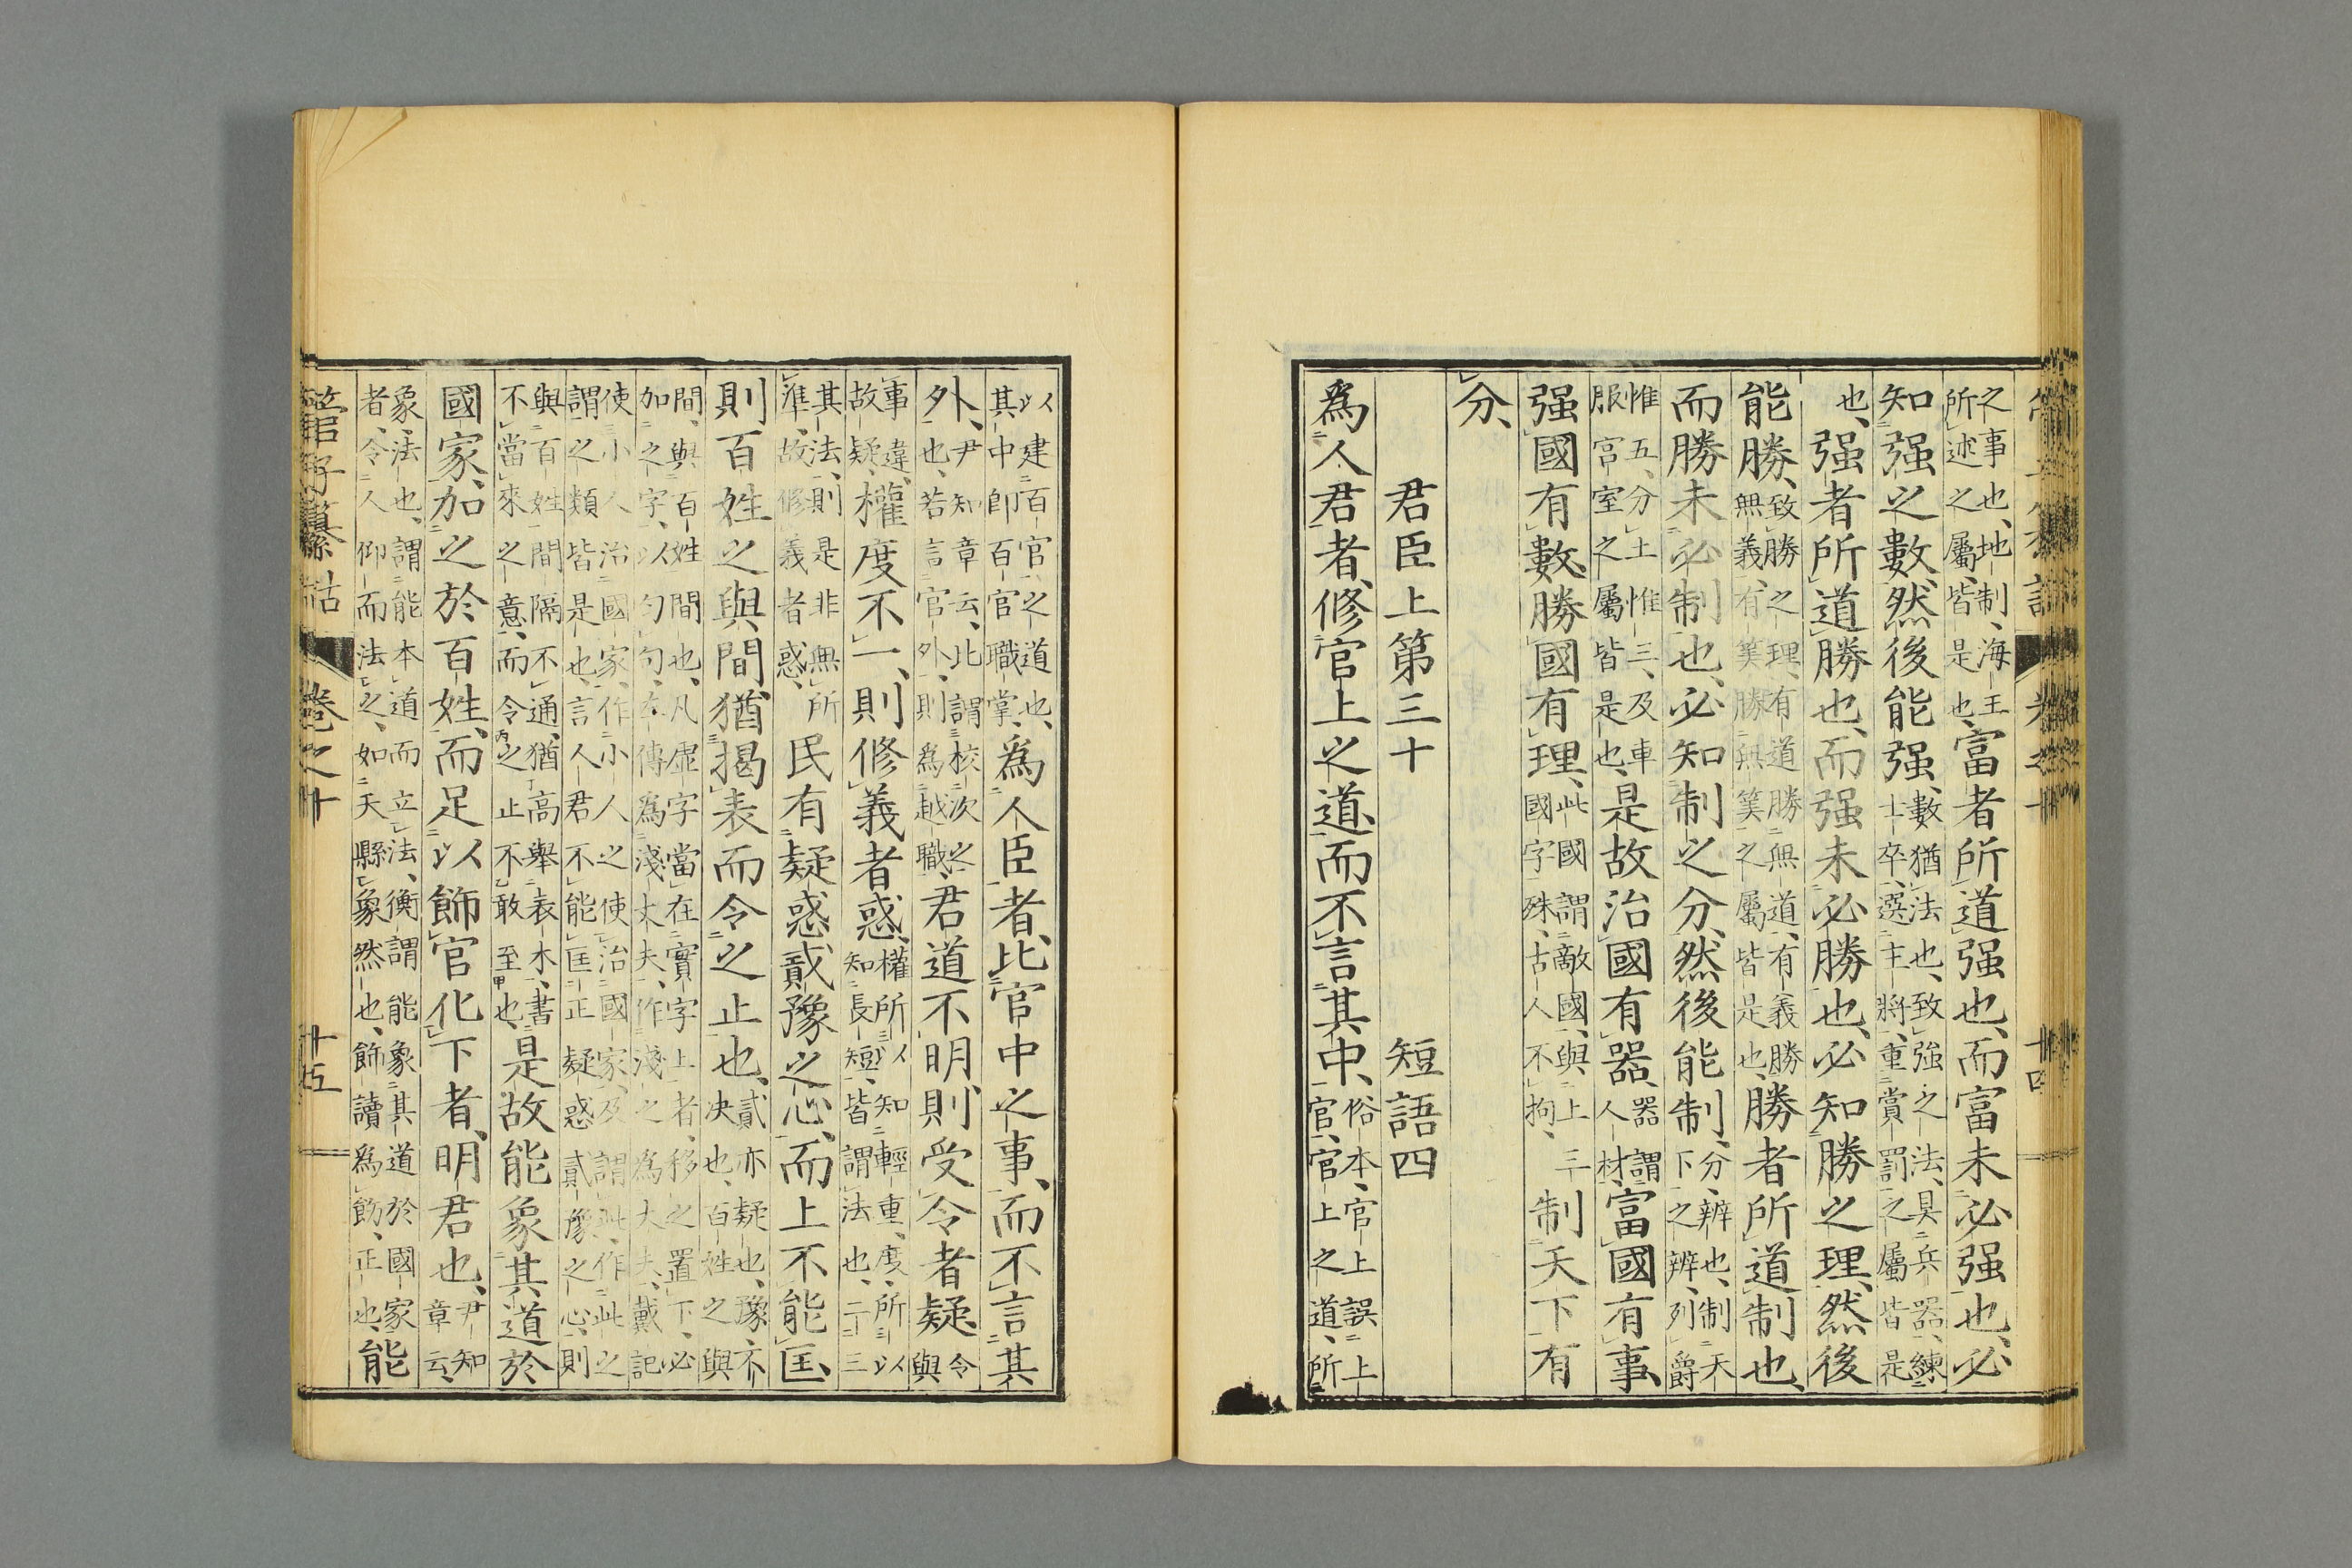 管子纂詁 卷之十 十四
之事也、地制、海王所述之屬、皆是也、富者所道强也、而富未必强也、必
知强之數、然後能强、數猶法也、致强之法、具兵器、練士卒、選主將、重賞罰之屬皆是
也、强者所道勝也、而强未必勝也、必知勝之理、然後
能勝、致勝之理、有道勝無道、有義勝無義、有筭勝無筭之屬皆是也、勝者所道制也、
而勝未必制也、必知制之分、然後能制、分、辨也、制天下之辨、列爵
惟五、分土惟三、及車服宮室之屬皆是也、是故治國有器、器謂人材富國有事、
强國有數、勝國有理、此國謂敵國、與上三國字殊、古人不拘、制天下有
分、
君臣上第三十 短語四
爲人君者、修官上之道、而不言其中、俗本、官上誤上官、官上之道、所
以建百官之道也、其中卽百官職掌、爲人臣者、比官中之事、而不言其
外、尹知章云、比謂校次之也、若言官外、則爲越職、君道不明、則受令者疑、令與
事違、故疑、權度不一、則修義者惑、權所以知輕重、度、所以知長短、皆謂法也、二三
其法、則是非無所準、故修義者惑、民有疑惑貳豫之心、而上不能匡、
則百姓之與間、猶揭表而令之止也、貳亦疑也、豫、不決也、百姓之與
間、與百姓間也、凡虛字當在實字上者、移之置下、必加之字、以勻句、左傳爲淺丈夫、作淺之爲丈夫、戴記
使小人治國家、作小人之使治國家、及謂此、作此之謂之類皆是也、言人君不能匡正疑惑貳豫之心、則
與百姓間隔不通、猶高擧表木、書不當來之意、而令之止不敢至也、是故能象其道於
國家、加之於百姓、而足以飾官化下者、明君也、尹知章云、
象、法也、謂能本道而立法、衡謂能象其道於國家者、令人仰而法之、如天縣象然也、飾讀爲飭、正也、能
管子纂詁 卷之十 十五